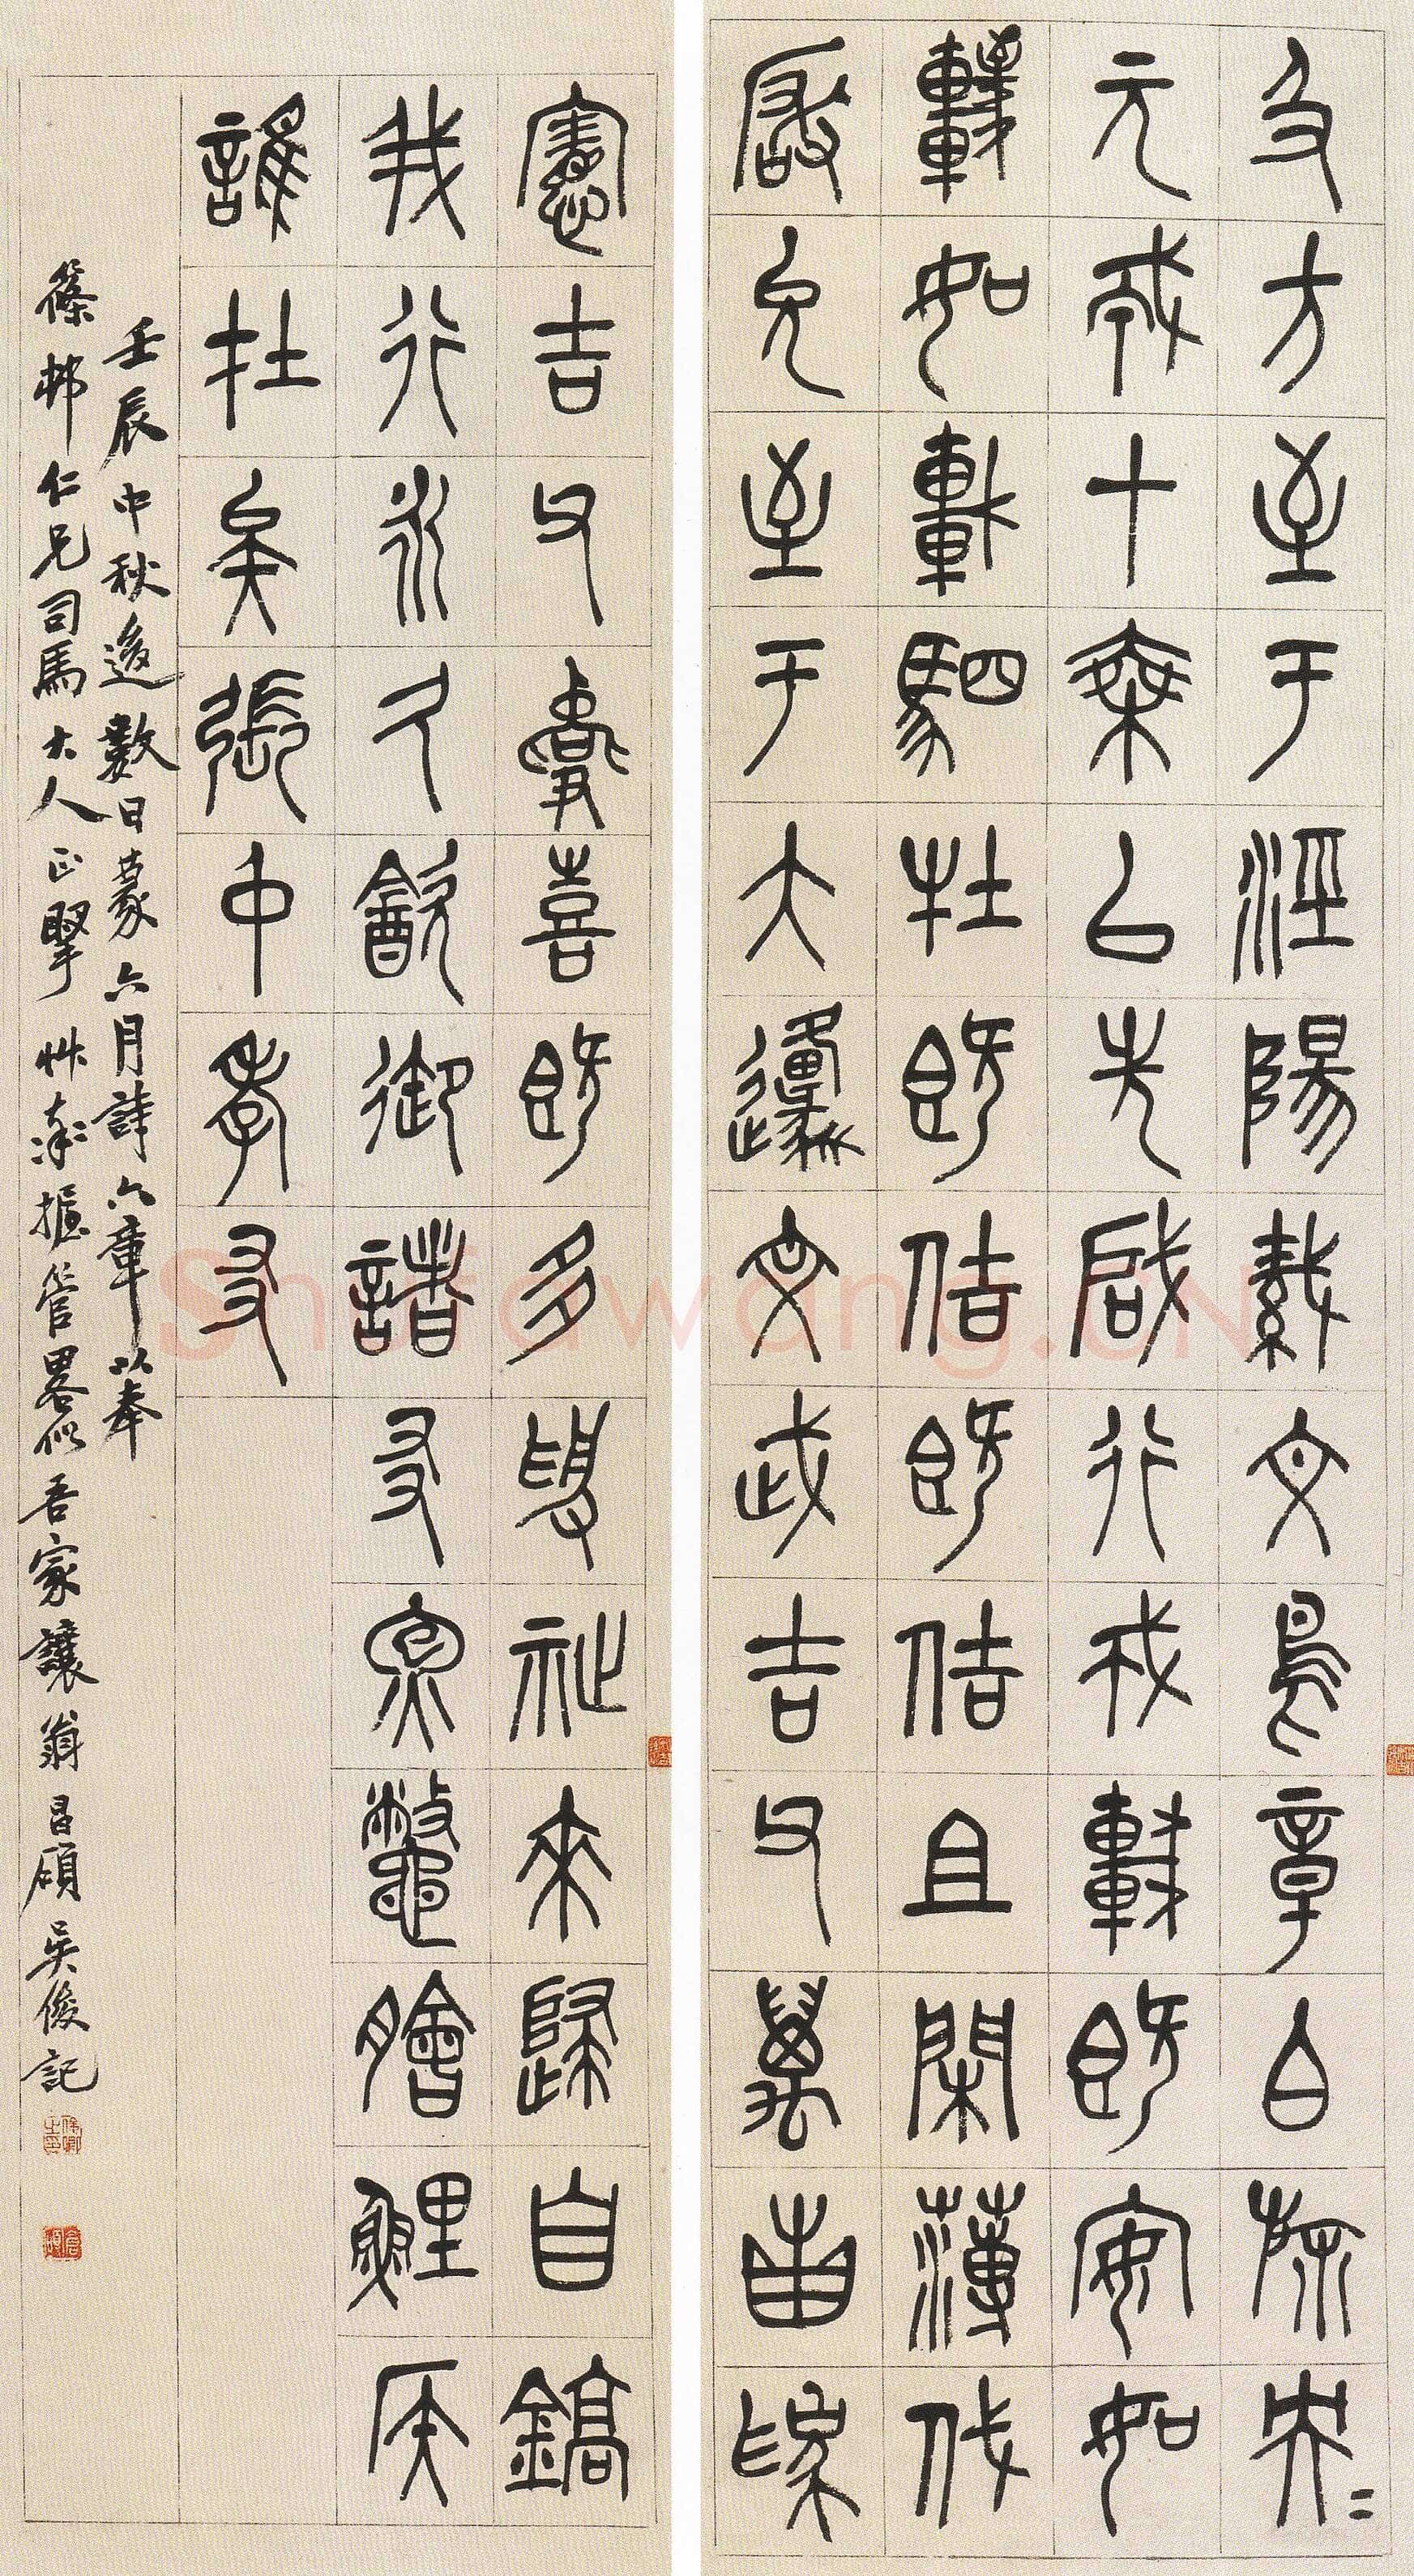 及方至于涇陽織文鳥章白旆央〻
元戎十乘以先啟行戎車既安如
輊如軒駟牡既佶既佶且閑薄伐
玁允至于大邍文武吉甫萬邦為
憲吉甫燕喜既多受祉來歸自鎬
我行永久飲御諸友炰鱉膾鯉侯
誰在矣張中孝友
壬辰中秋後數日篆六月詩六章以奉
篠邨仁兄司馬大人正掔艸率握管畧似吾家讓翁昌碩吳俊記
Shufawang.CN